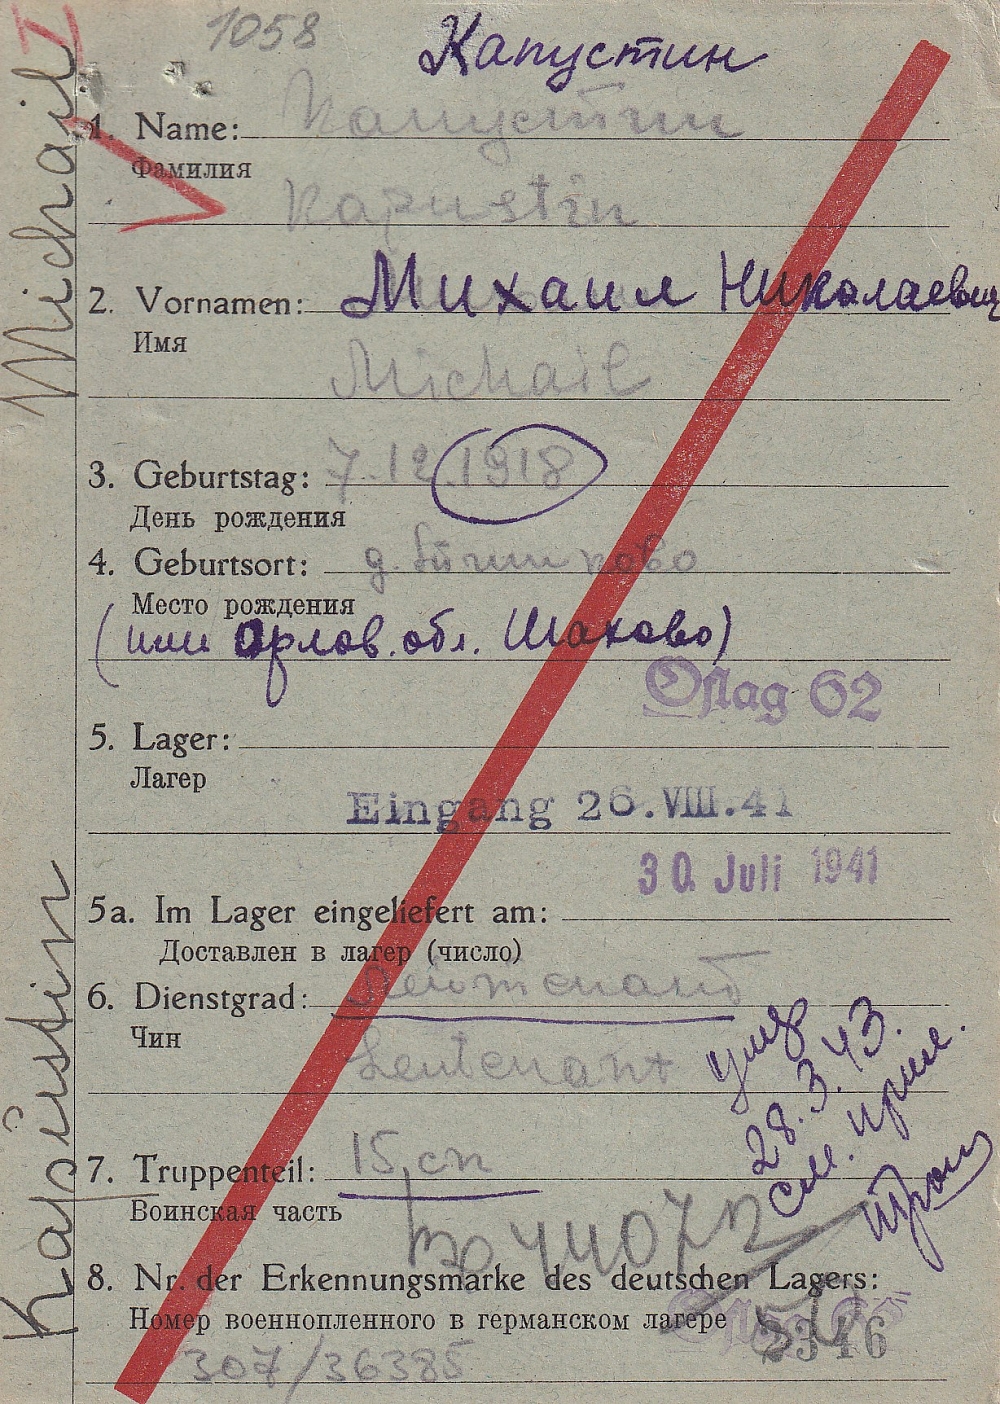 I
1058
Капустин
1. Name: Капустин
Фамилия
Kapustin
2. Vornamen: Михаил Николаевич
Имя
Michail
3. Geburtstag: 7.12.1918
День рождения
4. Geburtsort: д.
Место рождения
(или Орлов. обл. Шахово)
Oflag 62
5. Lager:
Лагер
Eingang 26.VIII.41
30. Juli 1941
5a. Im Lager eingeliefert am:
Доставлен в лагер (число)
6. Dienstgrad: Лейтенант
Чин
Leutenant
умер
28.3.43.
см. прил.
7. Truppenteil: 15 сп
Воинская часть
8. Nr. der Erkennungsmarke des deutschen Lagers:
Номер военнопленного в германском лагере
2346
307/36385
Kapustin Michail